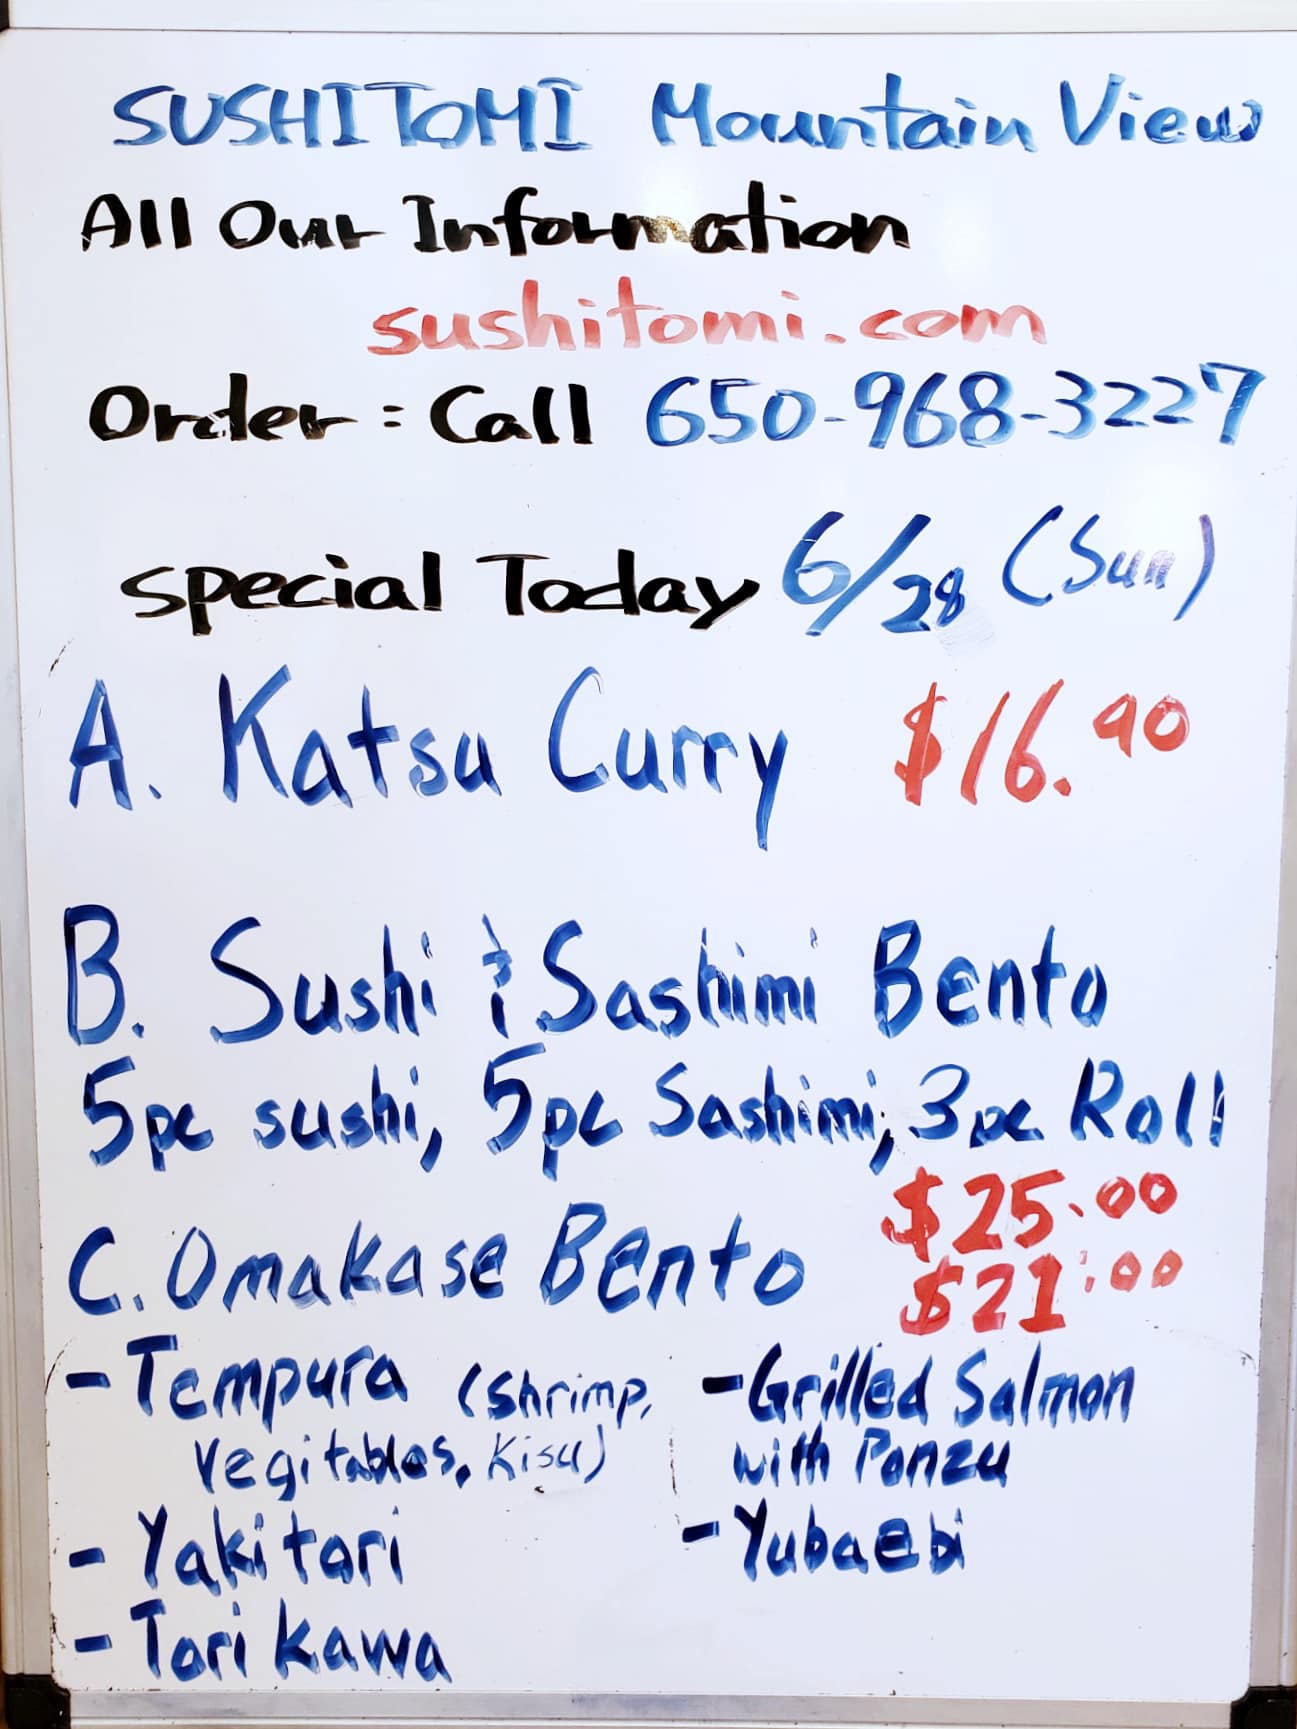 SUSHITOMI Mountain View
All Our Information
sushitomi.com
Order = Call 650-968-3227
special Today 6/28 (Sun)
A. Katsu Curry $16.90
B. Sushi & Sashimi Bento
5pc sushi, 5pc Sashimi, 3pc Roll
$25.00
C. Omakase Bento $21.00
- Tempura (shrimp,
vegitables, Kisu)
- Yakitori
- Tori kawa
- Grilled Salmon
with Ponzu
- Yubaebi